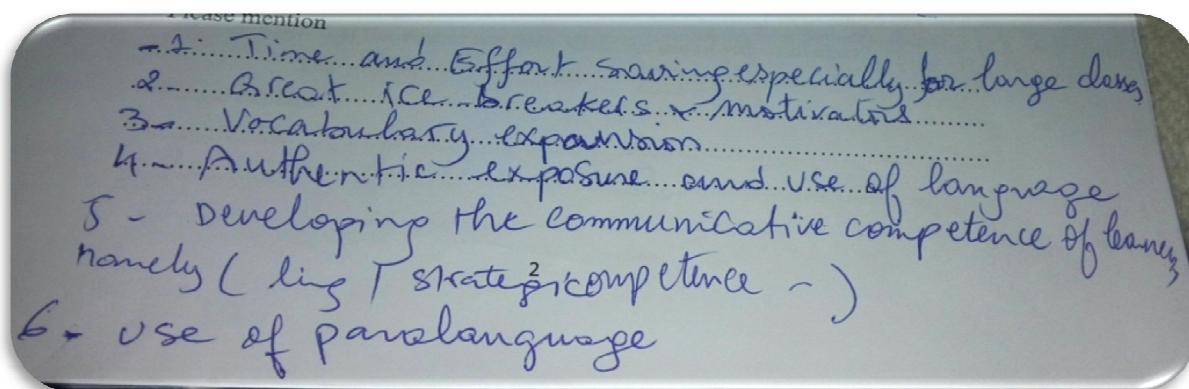 Please mention
-1. Time and Effort saving especially for large classes
2. Great ice breakers & motivators
3- Vocaboulary expansion
4- Authentic exposure and use of language
5- Developing the communicative competence of learners
namely ( ling / strategic competence - )
2
6- use of paralanguage